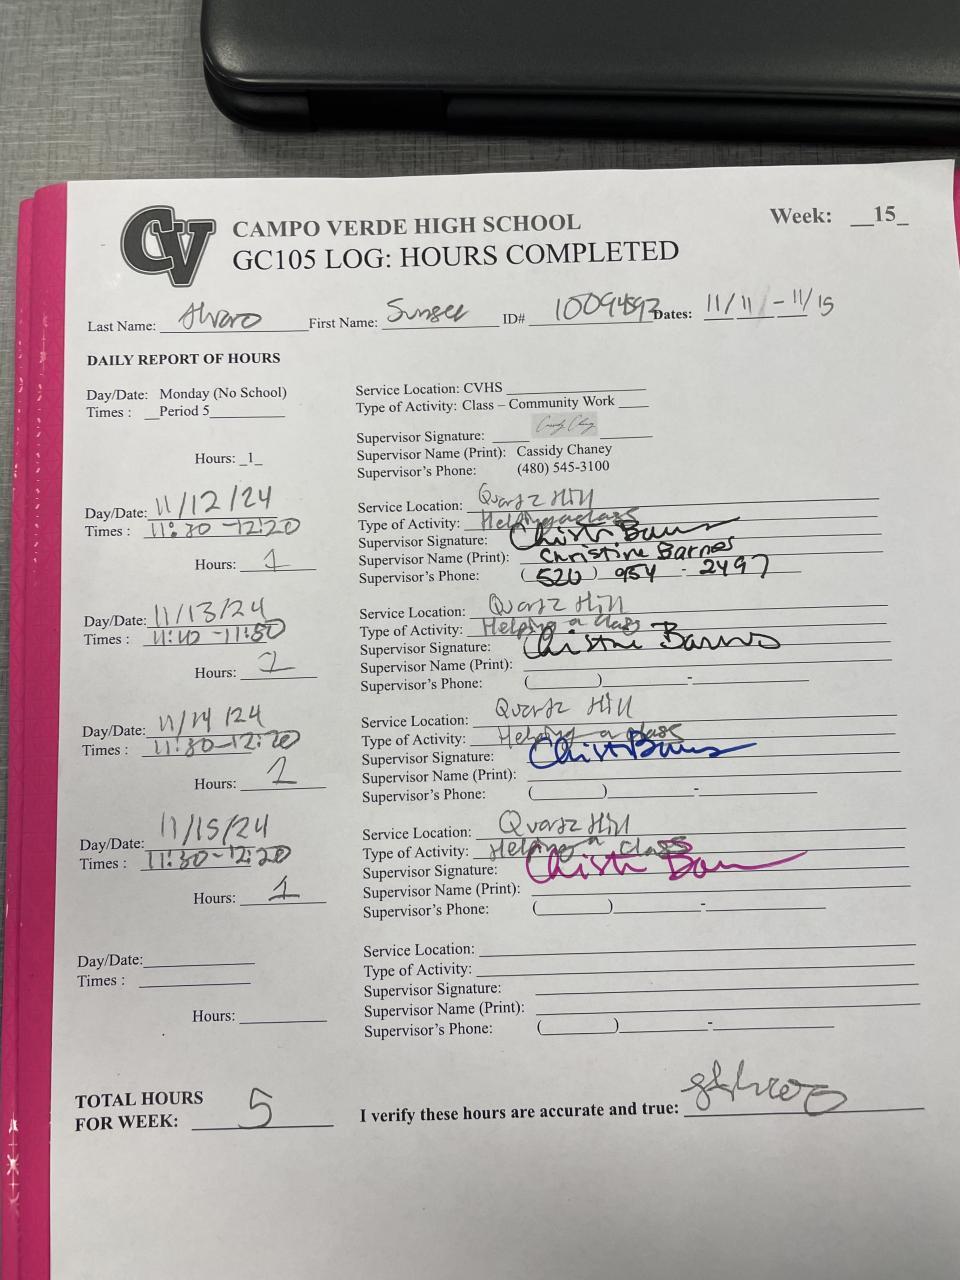 CV
CAMPO VERDE HIGH SCHOOL
Week: __15_
GC105 LOG: HOURS COMPLETED
Last Name: Alvaro First Name: Sunsee ID# 10094893 Dates: 11/11 - 11/15
DAILY REPORT OF HOURS
Day/Date: Monday (No School)
Times : __Period 5
Hours: _1_
Service Location: CVHS
Type of Activity: Class – Community Work
Supervisor Signature:
Supervisor Name (Print): Cassidy Chaney
Supervisor's Phone: (480) 545-3100
Day/Date: 11/12/24
Times : 11:30 -12:20
Hours: 1
Service Location: Quartz Hill
Type of Activity: Helping a class
Supervisor Signature:
Supervisor Name (Print): Christine Barnes
Supervisor's Phone: (520) 954 - 2497
Day/Date: 11/13/24
Times :
Hours: 1
Service Location: Quartz Hill
Type of Activity: Helping a class
Supervisor Signature: Christine Barnes
Supervisor Name (Print):
Supervisor's Phone: ( ) -
Day/Date: 11/14/24
Times : 11:30-12:20
Hours: 1
Service Location: Quartz Hill
Type of Activity: Helping a class
Supervisor Signature:
Supervisor Name (Print):
Supervisor's Phone: ( ) -
Day/Date: 11/15/24
Times : 11:30-12:20
Hours: 1
Service Location: Quartz Hill
Type of Activity: Helping a class
Supervisor Signature:
Supervisor Name (Print):
Supervisor's Phone: ( ) -
Day/Date:
Times :
Hours:
Service Location:
Type of Activity:
Supervisor Signature:
Supervisor Name (Print):
Supervisor's Phone: ( ) -
TOTAL HOURS
FOR WEEK: 5
I verify these hours are accurate and true: